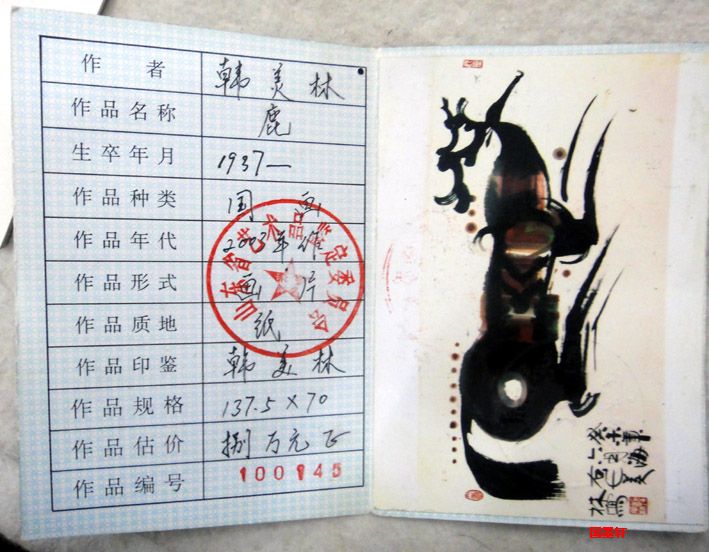 作者 韩美林
作品名称 鹿
生卒年月 1937—
作品种类 国画
作品年代 2003年作
作品形式 画片
作品质地 纸
作品印鉴 韩美林
作品规格 137.5×70
作品估价 捌万元正
作品编号 100145
山东省艺术品鉴定委员会
癸未年
国墨轩